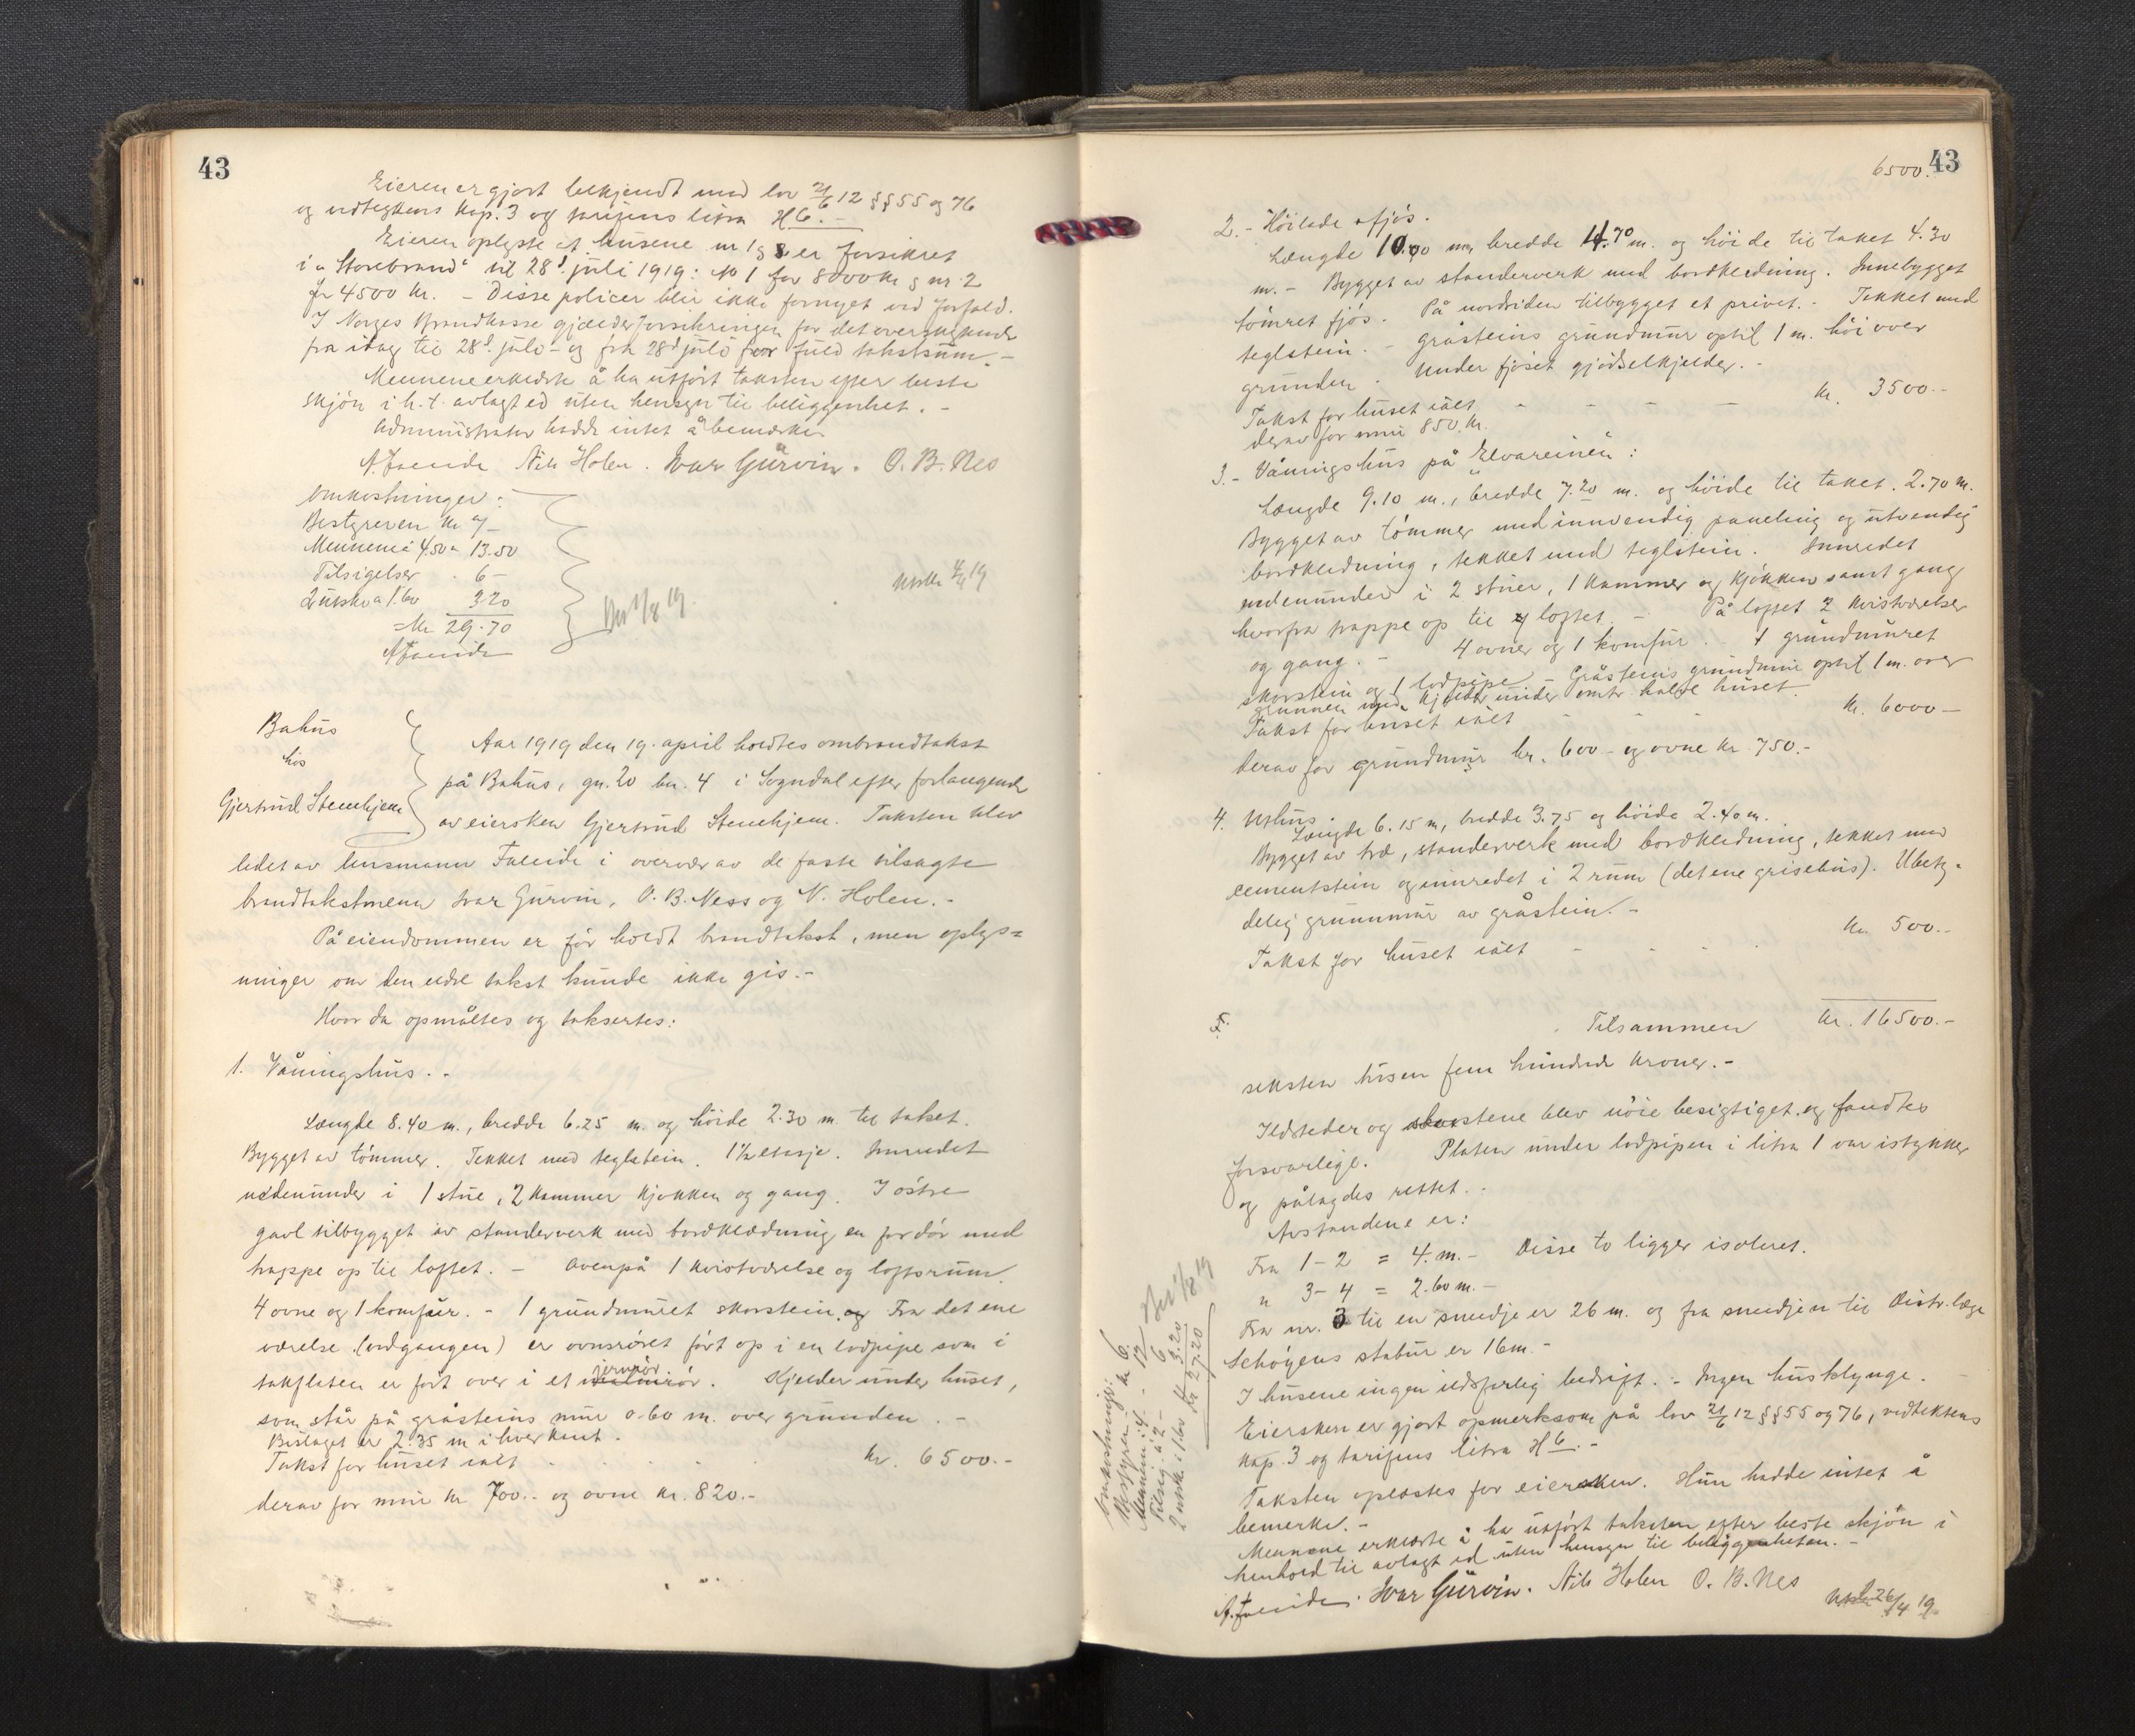 43
Eieren er gjort bekjendt med lov 21/6 12 §§ 55 og 76
og vedtegtens kap. 3 og tarifens litra H 6. -
Eieren oplyste at husene nr 1 og er forsikret
i "Storebrand" til 28d. juli 1919: N 1 for 8000 kr og nr. 2
for 4500 kr. - Disse policer blir ikke fornyet ved forfald.
I Norges Brandkasse gjælder forsikringen for det overskytende
fra idag til 28d. juli - og fra 28d juli for fuld takstsum. -
Mennene erklærte å ha utført taksten efter beste
skjøn i h. t. avlagt ed uten hensyn til beliggenhet. -
Administrator hadde intet å bemerke.
A. Faleide Nils Holen. Ivar Gürvin. O. B. Nes
Omkostninger:
Bestyreren kr 9/-
Mennene á 4.50 = 13.50
Tilsigelser . 6 -
2 utskr a 1.60 3.20
= Kr 29.70
A Faleide
Utskr 4/4 19
Bahus
hos
Gjertrud Stenehjem
Aar 1919 den 19. april holdtes ombrandtakst
på Bahus, gn. 20 bn. 4 i Sogndal efter forlangende
av eiersken Gjertrud Stenehjem. Taksten blev
ledet av lensmann Faleide i overvær av de faste tilsagte
brandtakstmenn Ivar Gurvin, O. B. Ness og N. Holen. -
På eiendommen er før holdt brandtakst, men oplys=
ninger om den eldre takst kunde ikke gis. -
Hvor da opmåltes og taksertes:
1. Våningshus. -
Længde 8.40 m., bredde 6.25 m. og høide 2.30 m. til taket.
Bygget av tømmer. Tekket med teglstein. 1 1/2 etasje. Innredet
nedenunder i 1 stue, 2 kammer kjøkken og gang. I østre
gavl tilbygget av standerverk med bordklædning en fordør med
trappe op til loftet. - Ovenpå 1 kvistværelse og loftsrum.
4 ovne og 1 komfur. - 1 grundmuret skorstein. og Fra det ene
værelse (indgangen) er ovnsrøret ført op i en lodpipe som i
takflaten er ført over i et jernrør. Kjelder under huset,
som står på gråsteins mur 0.60 m. over grunden. -
Bislaget er 2.35 m i hver kant.
Takst for huset ialt . . . kr. 6500.-
derav for mur kr 700.- og ovne kr. 820.-
43
6500.
2. - Høilade & fjøs.
Længde 10.00 m, bredde 4.70 m. og høide til taket 4.30
m. - Bygget av standerverk med bordkledning. Innebygget
tømret fjøs. På nordsiden tilbygget et privet. - Tekket med
teglstein. - gråsteins grundmur optil 1 m. høi over
grunden. Under fjøset gjødselkjelder. -
Takst for huset ialt - - - kr. 3500.-
derav for mur 850 kr.
3. - Våningshus på "Elvareinen":
Længde 9.10 m., bredde 7.20 m. og høide til taket. 2.70 m.
Bygget av tømmer med innvendig paneling og utvendig
bordkledning, tekket med teglstein. Innredet
nedenunder i 2 stuer, 1 kammer og kjøkken samt gang
hvorfra trappe op til loftet. - På loftet 2 kvistværelser
og gang. - 4 ovner og 1 komfur. 1 grundmuret
skorstein og 1 lodpipe - Gråsteins grundmur optil 1 m. over
grunnen med kjelder under omtr. halve huset.
Takst for huset ialt - - - kr. 6000 -
derav for grundmur kr. 600 - og ovne kr 750.-
4. Uthus.
Længde 6.15 m, bredde 3.75 og høide 2.40 m.
Bygget av træ, standerverk med bordkledning, tekket med
cementstein og innredet i 2 rum (det ene grisehus). Ubety=
delig grunnmur av gråstein. -
Takst for huset ialt - - - kr. 500.-
Tilsammen kr. 16500.-
seksten tusen fem hundrede kroner. -
Ildsteder og skorstene blev nøie besigtiget og fandtes
forsvarlige. Platen under lodpipen i litra 1 var istykker
og pålagdes rettet. -
Avstandene er:
Fra 1 - 2 = 4. m. - Disse to ligger isoleret.
" 3 - 4 = 2.60 m. -
Fra nr. 3 til en smedje er 26 m. og fra smedjen til Distr.læge
Schøyens stabur er 16 m. -
I husene ingen ildsfarlig bedrift. - Ingen husklynge. -
Eiersken er gjort opmerksom på lov 21/6 12 §§ 55 og 76, vedtektens
kap. 3 og tarifens litra H 6. -
Taksten oplæstes for eiersken. Hun hadde intet å
bemerke. -
Mennene erklærte å ha utført taksten efter beste skjøn i
henhold til avlagt ed uten hensyn til beliggenheten. -
A. Faleide. Ivar Gürvin. Nils Holen O. B. Nes
Utskr 26/4 19
Omkostninger:
Bestyreren kr 6.
Mennene á 4 - 12
Tilsig. á 2 - 6
2 utskr. á 1.60 3.20
kr 27.20